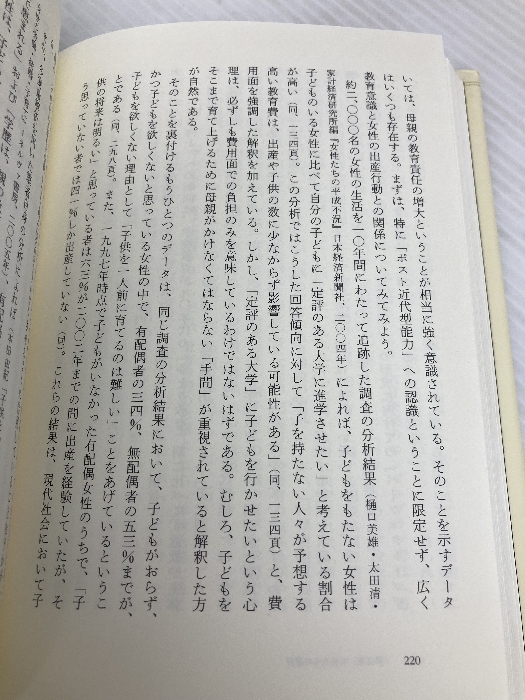 いては、母親の教育責任の増大ということが相当に強く意識されている。そのことを示すデータ
はいくつも存在する。まずは、特に「ポスト近代型能力」への認識ということに限定せず、広く
教育意識と女性の出産行動との関係についてみてみよう。
約二、〇〇〇名の女性の生活を一〇年間にわたって追跡した調査の分析結果（樋口美雄・太田清・
家計経済研究所編『女性たちの平成不況』日本経済新聞社、二〇〇四年）によれば、子どもをもたない女性は
子どものいる女性に比べて自分の子どもに「定評のある大学に進学させたい」と考えている割合
が高い（同、一三四頁）。この分析ではこうした回答傾向に対して「子を持たない人々が予想する
高い教育費は、出産や子供の数に少なからず影響している可能性がある」（同、一三四頁）と、費
用面を強調した解釈を加えている。しかし、「定評のある大学」に子どもを行かせたいという心
理は、必ずしも費用面での負担のみを意味しているわけではないはずである。むしろ、子どもを
そこまで育て上げるために母親がかけなくてはならない「手間」が重視されていると解釈した方
が自然である。
そのことを裏付けるもうひとつのデータは、同じ調査の分析結果において、子どもがおらず、
かつ子どもを欲しくないと思っている女性の中で、有配偶者の三四％、無配偶者の五三％までが、
子どもを欲しくない理由として「子供を一人前に育てるのは難しい」ことをあげているというこ
とである（同、二八頁）。また、一九九七年時点で子どもがいなかった有配偶女性のうちで、「子
供の将来は明るい」と思っている者は六三％が二〇〇二年までの間に出産を経験していたが、そ
う思っていない者では四一％しか出産していない（同）。これらの結果は、現代社会において子
220